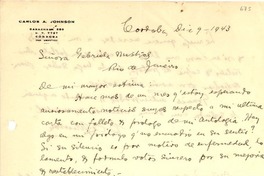 CARLOS A. JOHNSON
CORDOBA
Cordoba, Dic 9-1943
Señora Gabriela Mistral
Rio de Janeiro
De mi mayor estima
Hace mas de un mes q' estoy esperando
ansiosamente noticias suyas respecto a mi ultima
carta con folleto & prologo de mi Antologia. Hay
algo en mi prologo q' no
Si su silencio es por motivo de enfermedad, lo
lamento, & formulo votos sinceros por su mejoria
& restablecimiento.